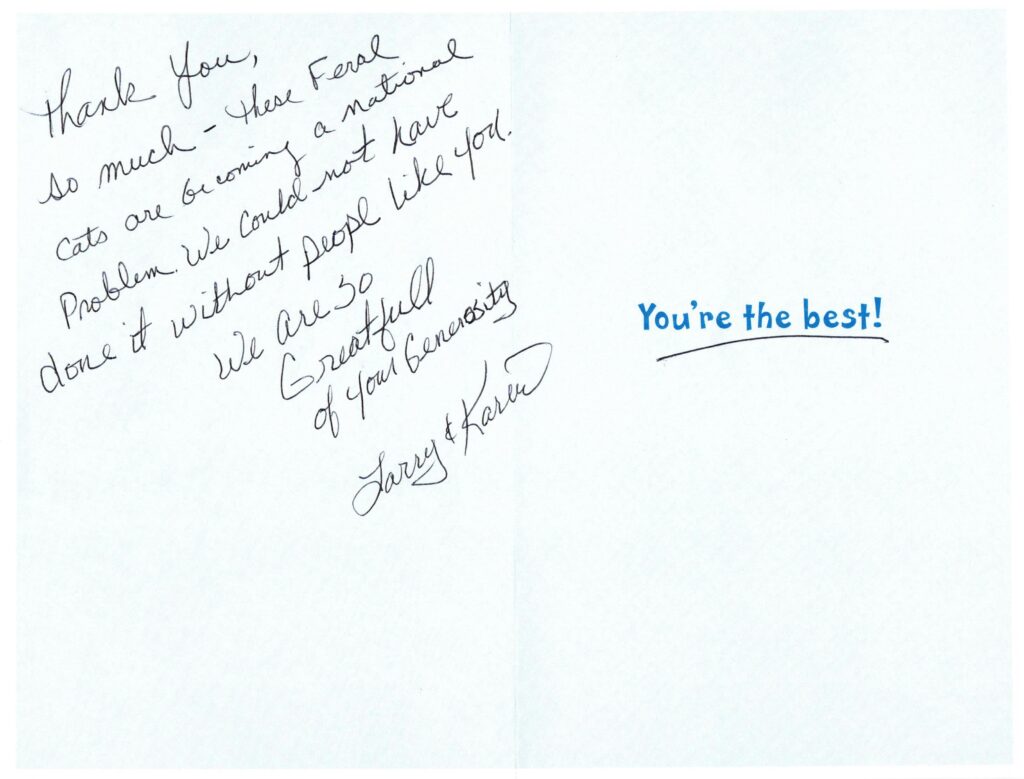 Thank You,
so much - these Feral
Cats are becoming a national
Problem. We Could not have
done it without people like you.
We are so
Greatfull
of your Generosity
Larry & Karen
You're the best!